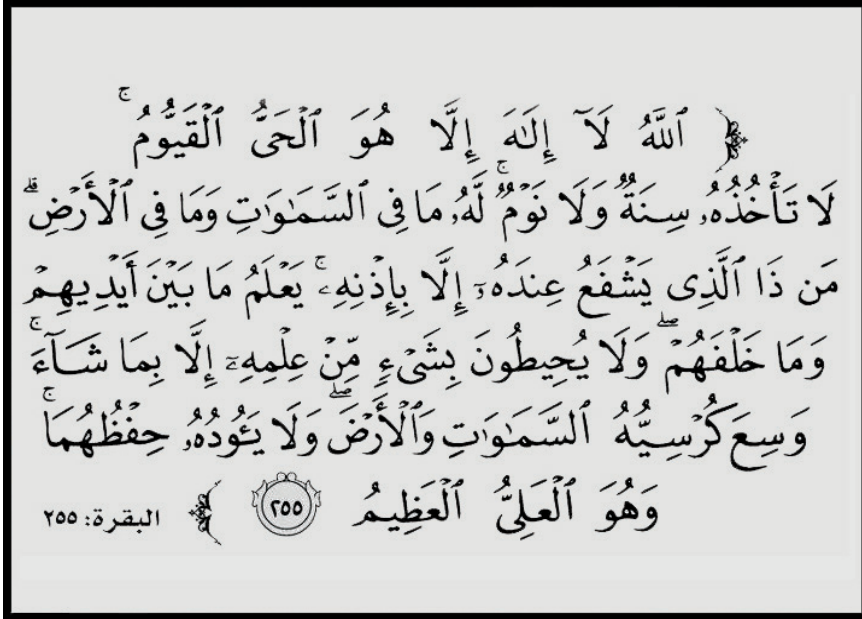 ﴿ ٱللَّهُ لَآ إِلَٰهَ إِلَّا هُوَ ٱلْحَىُّ ٱلْقَيُّومُ ۚ
لَا تَأْخُذُهُۥ سِنَةٌ وَلَا نَوْمٌ ۚ لَّهُۥ مَا فِى ٱلسَّمَٰوَٰتِ وَمَا فِى ٱلْأَرْضِ ۗ
مَن ذَا ٱلَّذِى يَشْفَعُ عِندَهُۥٓ إِلَّا بِإِذْنِهِۦ ۚ يَعْلَمُ مَا بَيْنَ أَيْدِيهِمْ
وَمَا خَلْفَهُمْ ۖ وَلَا يُحِيطُونَ بِشَىْءٍ مِّنْ عِلْمِهِۦٓ إِلَّا بِمَا شَآءَ ۚ
وَسِعَ كُرْسِيُّهُ ٱلسَّمَٰوَٰتِ وَٱلْأَرْضَ ۖ وَلَا يَـُٔودُهُۥ حِفْظُهُمَا ۚ
وَهُوَ ٱلْعَلِىُّ ٱلْعَظِيمُ ٢٥٥ ﴾ البقرة: ٢٥٥